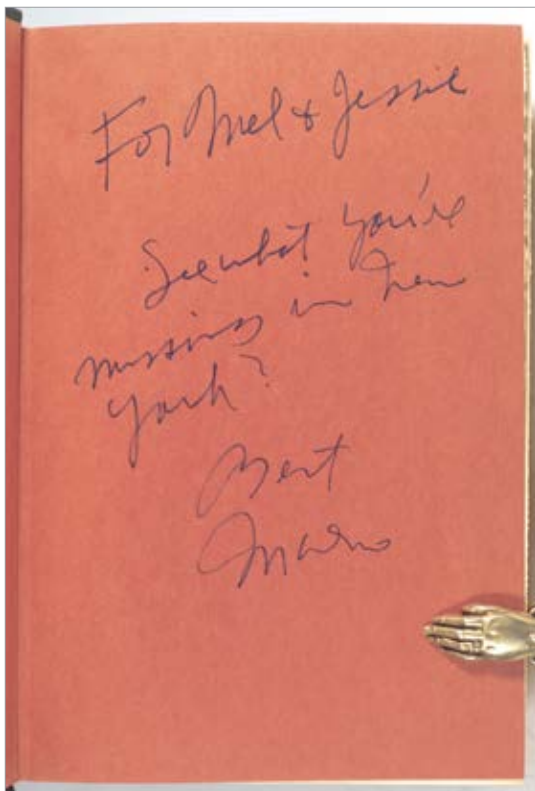 For Mel & Jessie
See what you're
missing in New
York?
Best
Mario